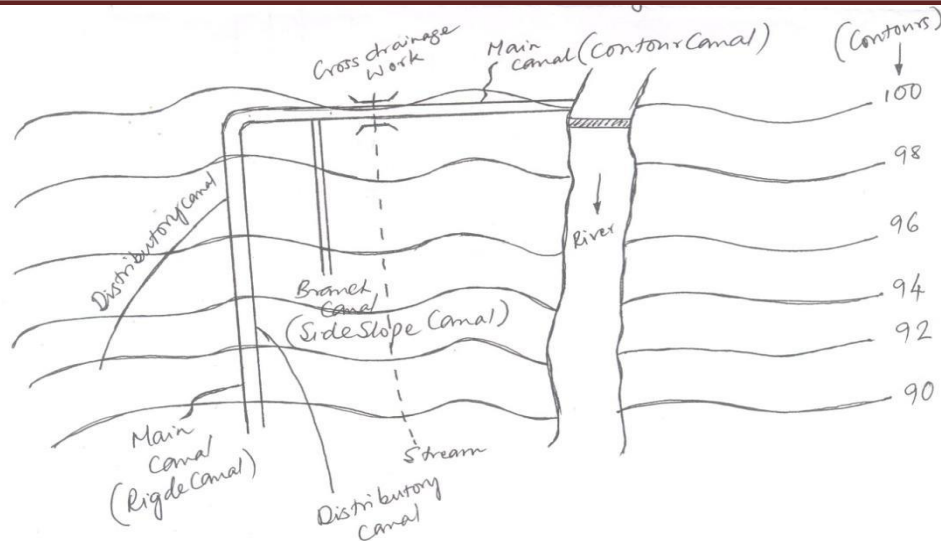 Cross drainage
work
Main
canal (Contour Canal)
(Contours)
100
98
96
94
92
90
Distributory Canal
River
Branch
Canal
(Side Slope Canal)
Main
Canal
(Rigde Canal)
Stream
Distributory
Canal